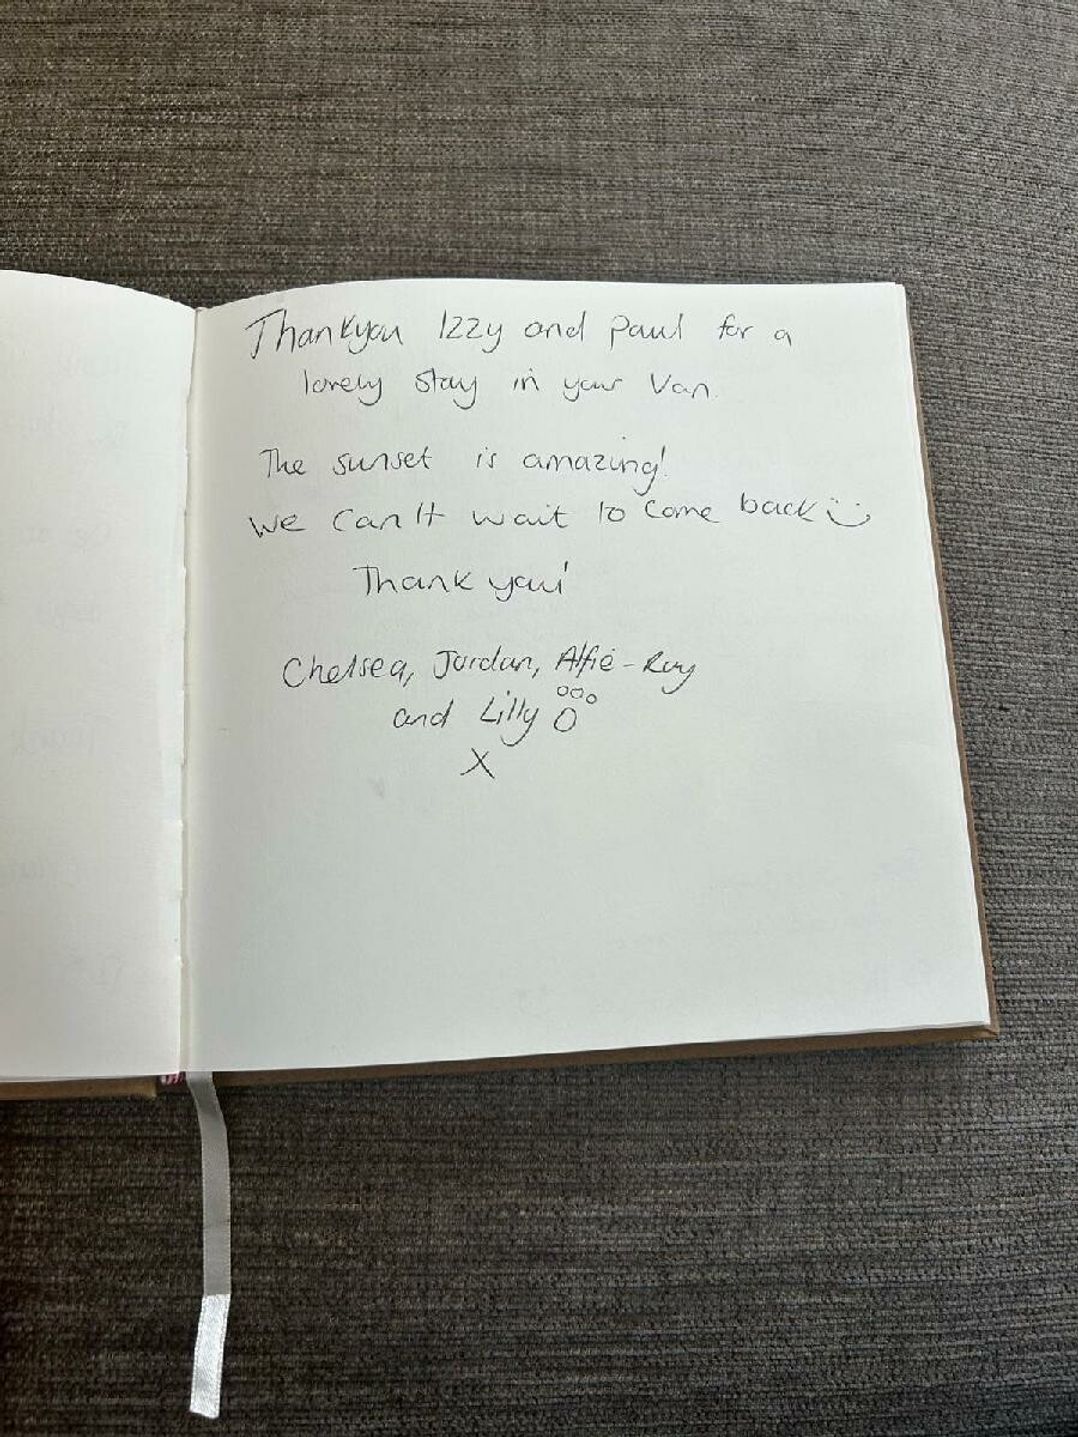 Thankyou Izzy and Paul for a
lovely stay in your Van.
The sunset is amazing!
We can't wait to come back :)
Thank you!
Chelsea, Jordan, Alfie-Ray
and Lilly
X